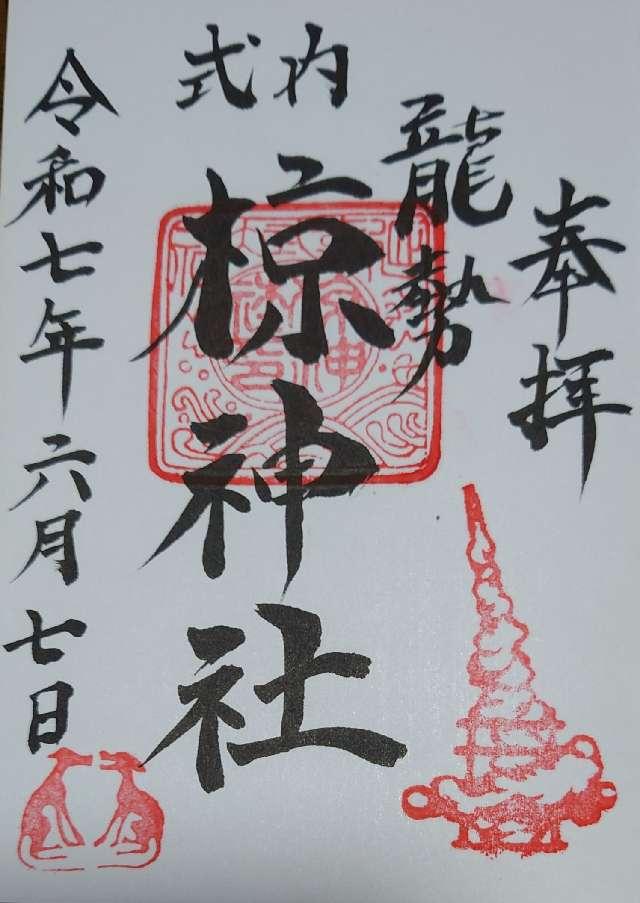 奉拝
龍勢
式内
椋神社
令和七年六月七日